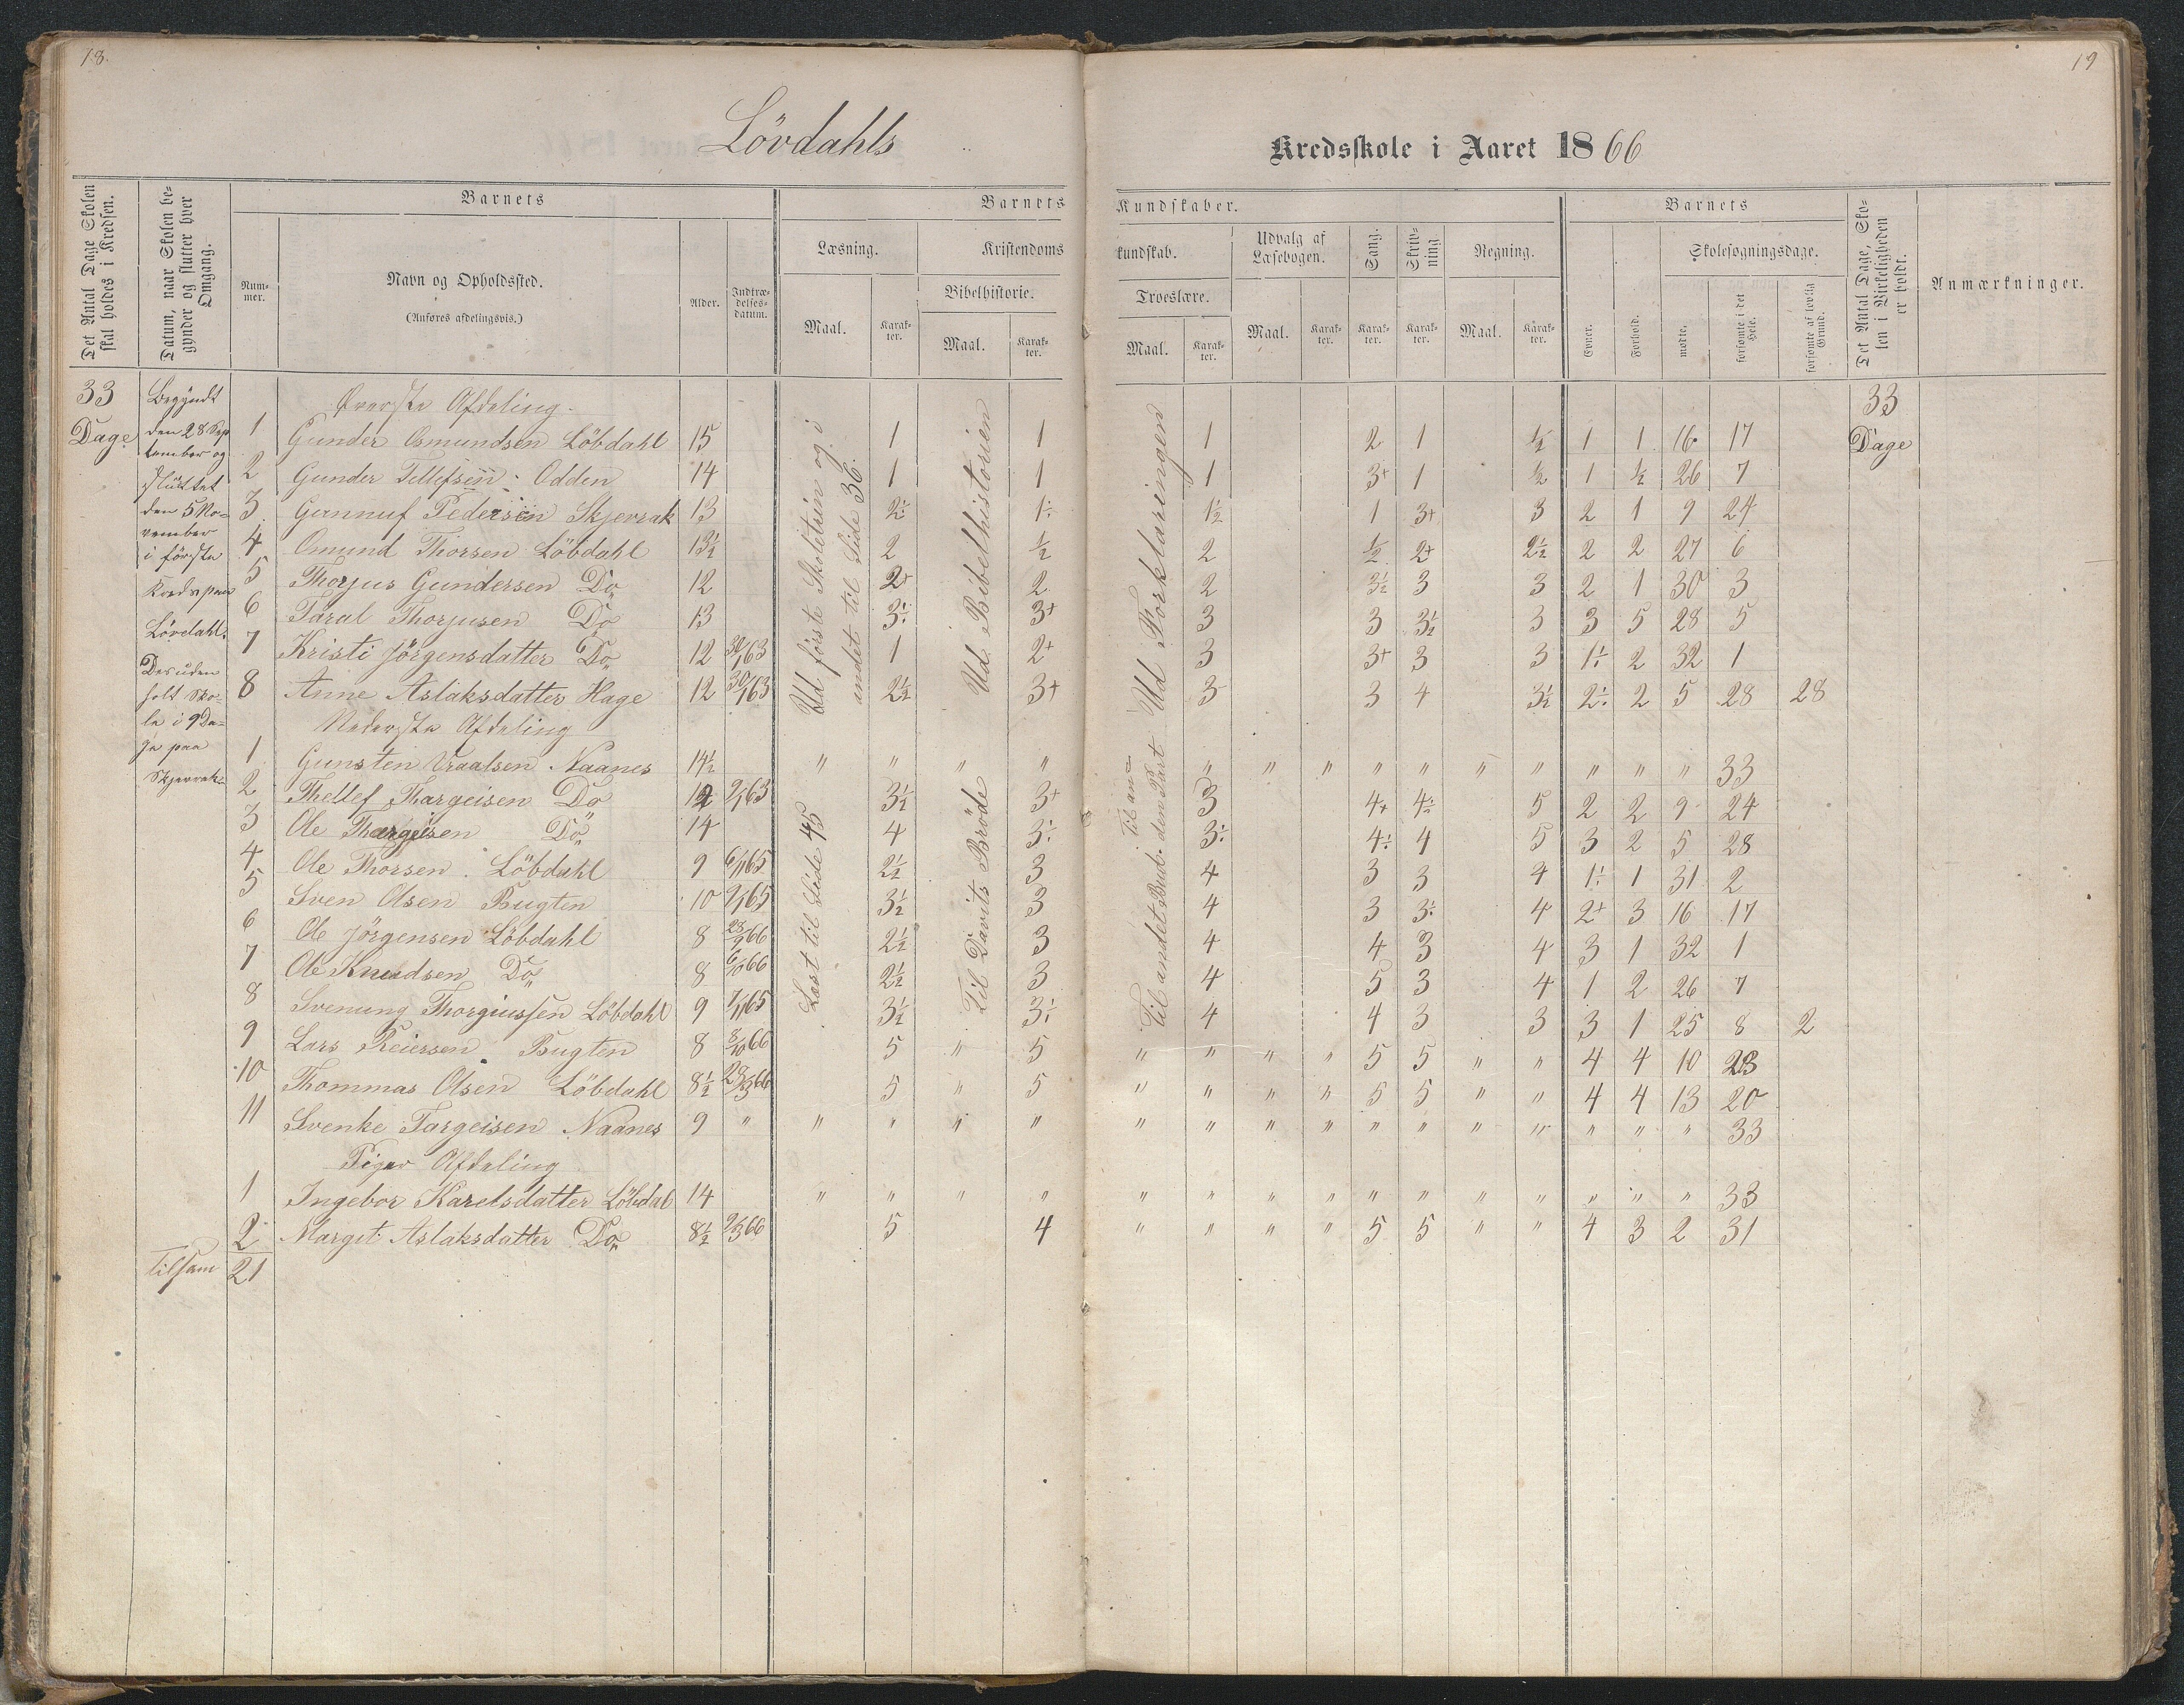 18.
19
Lövdahls Kredsskole i Aaret 1866
Det Antal Dage Skolen skal holdes i Kredsen.
Datum, naar Skolen begynder og slutter hver Omgang.
Barnets
Nummer.
Navn og Opholdssted.
(Anføres afdelingsvis.)
Alder.
Indtrædelsesdatum.
Barnets Kundskaber.
Læsning.
Maal.
Karakter.
Kristendomskundskab.
Bibelhistorie.
Maal.
Karakter.
Troeslære.
Maal.
Karakter.
Udvalg af Læsebogen.
Maal.
Karakter.
Sang.
Karakter.
Skrivning
Karakter.
Regning.
Maal.
Karakter.
Barnets
Evner.
Forhold.
Skolesøgningsdage.
mødte.
forsømte i det Hele.
forsømte af lovlig Grund.
Det Antal Dage, Skolen i Virkeligheden er holdt.
Anmærkninger.
33 Dage
Begyndt
den 28 Sep
tember og
sluttet
den 5 No-
vember
i første
Kreds paa
Lövdahl.
Desuden
holt Sko-
le i 9 Da-
ge paa
Skjerrak
Øverste Afdeling.
Ud første Skoletrin og i andet til Side 36.
Ud Bibelhistorien
Ud Forklaringen
33 Dage
1 Gunder Osmundsen Löbdahl 15 1 1 1 2 1 ½ 1 1 16 17
2 Gunder Tellefsen Odden 14 1 1 1 3+ 1 ½ 1 ½ 26 7
3 Gunnuf Pedersen Skjerrak 13 2÷ 1÷ 1½ 1 3+ 3 2 1 9 24
4 Osmund Thorsen Löbdahl 13½ 2 ½ 2 ½ 2+ 2½ 2 2 27 6
5 Thorjus Gundersen Do 12 2+ 2 2 3½ 3 3 2 1 30 3
6 Taral Thorjusen Do 13 3÷ 3+ 3 3 3½ 3 3 5 28 5
7 Kristi Jörgensdatter Do 12 30/1 63 1 2+ 3 3+ 3 3 1÷ 2 32 1
8 Anne Aslaksdatter Hage 12 30/1 63 2½ 3+ 3 3 4 3½ 2÷ 2 5 28 28
Nederste Afdeling
Læst til Side 45
Til Davits Brøde
Til andet Bud.
1 Gunsten Vraalsen Naanes 14½ " " " " " " " " " " " " " " 33
2 Thellef Thargeisen Do 12 9/1 63 3½ 3+ 3 4+ 4÷ 5 2 2 9 24
3 Ole Thargeisen Do 14 4 3÷ 3÷ 4÷ 4 5 3 2 5 28
4 Ole Thorsen Löbdahl 9 6/11 65 2½ 3 4 3 3 4 1÷ 1 31 2
5 Sven Olsen Bugten 10 9/1 65 3½ 3 4 3 3÷ 4 2+ 3 16 17
6 Ole Jörgensen Löbdahl 8 28/9 66 2½ 3 4 4 3 4 3 1 32 1
7 Ole Knudsen Do 8 6/10 66 2½ 3 4 5 3 4 1 2 26 7
8 Svenung Thorgiussen Löbdahl 9 7/11 65 3½ 3÷ 4 4 3 3 3 1 25 8 2
9 Lars Reiersen Bugten 8 8/10 66 5 " 5 " " " " 5 5 " " 4 4 10 23
10 Thommas Olsen Löbdahl 8½ 28/3 66 5 " 5 " " " " 5 5 " " 4 4 13 20
11 Svenke Targeisen Naanes 9 " " " " " " " " " " " " " " " " 33
Piger Afdeling
1 Ingebor Karelsdatter Löbdal 14 " " " " " " " " " " " " " " " 33
2 Margit Aslaksdatter Do 8½ 9/3 66 5 4 " " " " 5 5 " " 4 3 2 31
Tilsam 21